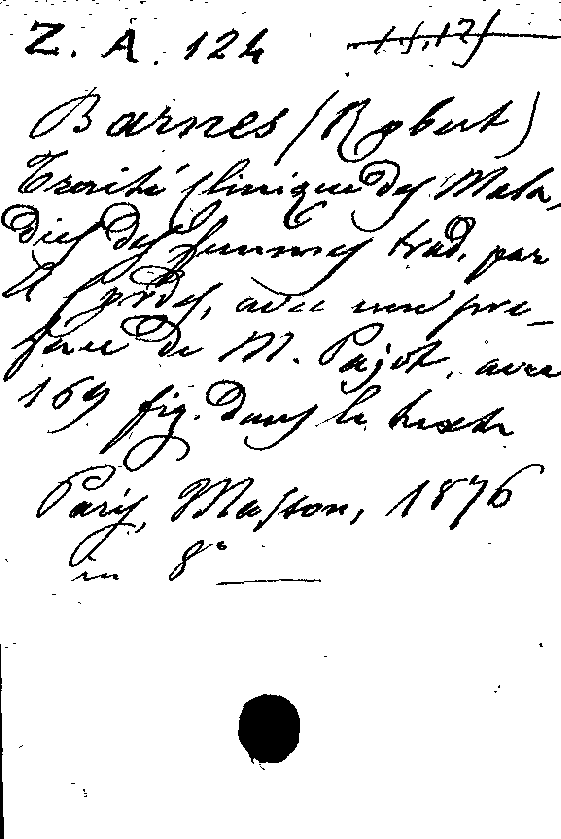 Z. A. 124
Barnes (Robert)
Traité Clinique des Mala-
dies des femmes trad. par
A Cordes, avec une pre-
face de M. Pajot, avec
169 fig. dans le texte
Paris, Masson, 1876
in 8°